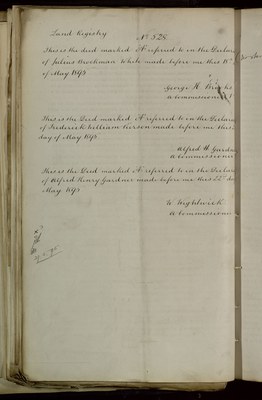 Land Registry No 526
This is the deed marked A referred to in the Declara
of Julius Brockman White made before me this
of May 1893
George H.
A Commissioner
This is the Deed marked A referred to in the Declara
of Frederick William made before me this
day of May 1893
Alfred H. Gardn
A Commissioner
This is the Deed marked A referred to in the Declara
of Alfred Henry Gardner made before me this 22d da
May 1893
W Wightwick
A Commissioner